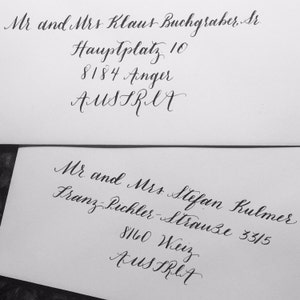 Mr and Mrs Klaus Buchgraber Sr
Hauptplatz 10
8184 Anger
AUSTRIA
Mr and Mrs Stefan Kulmer
Franz-Pichler-Strauße 33/5
8160 Weiz
AUSTRIA